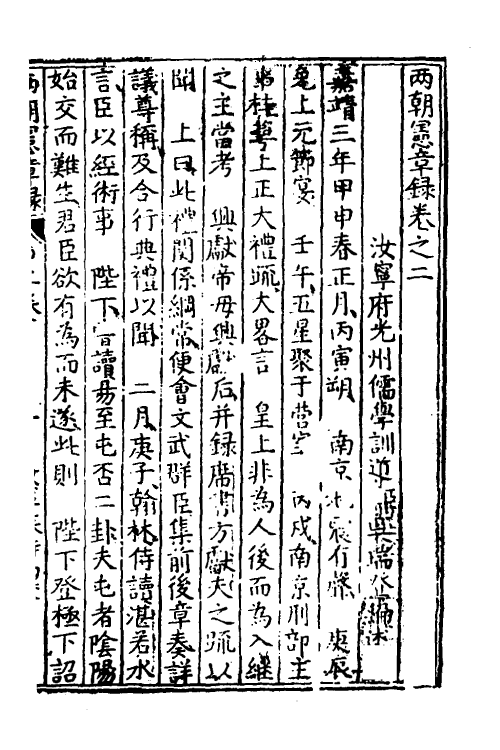 两朝憲章録卷之二
汝寧府光州儒學訓導吳瑞登編述
嘉靖三年甲申春正月丙寅朔 南京地震有聲 庚辰
免上元節宴 壬午五星聚于營室 丙戌南京刑部主
事桂萼上正大禮疏大畧言 皇上非為人後而為入継
之主當考 興獻帝母興獻后并録席書方獻夫之疏以
聞 上曰此禮關係綱常便會文武群臣集前後章奏詳
議尊稱及合行典禮以聞 二月庚子翰林侍讀湛若水
言臣以經術事 陛下甞讀昜至屯否二卦夫屯者陰陽
始交而難生君臣欲有為而未遂此則 陛下登極下詔
两朝憲章録